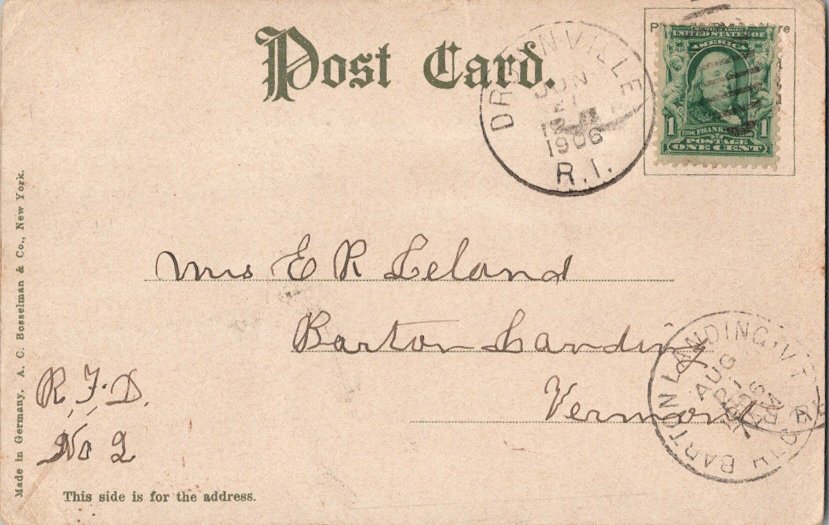 Post Card.
UNITED STATES OF
AMERICA
1 FRANKLIN 1
POSTAGE
ONE CENT
JUN
1906
R.I.
Mrs E R Leland
Barton Landing
Vermont
R.F.D.
No 2
BARTON LANDING, VT.
AUG
This side is for the address.
Made in Germany, A. C. Bosselman & Co., New York.